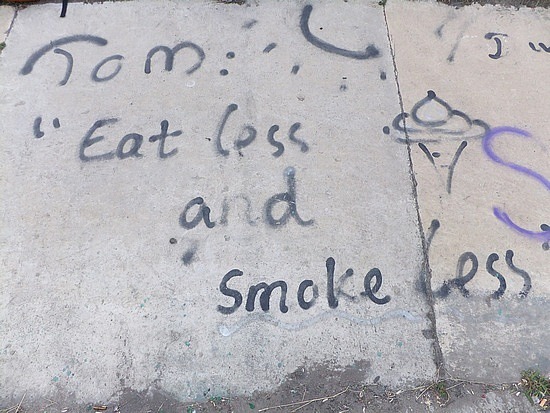 Tom:
I
"Eat less
and
smoke less